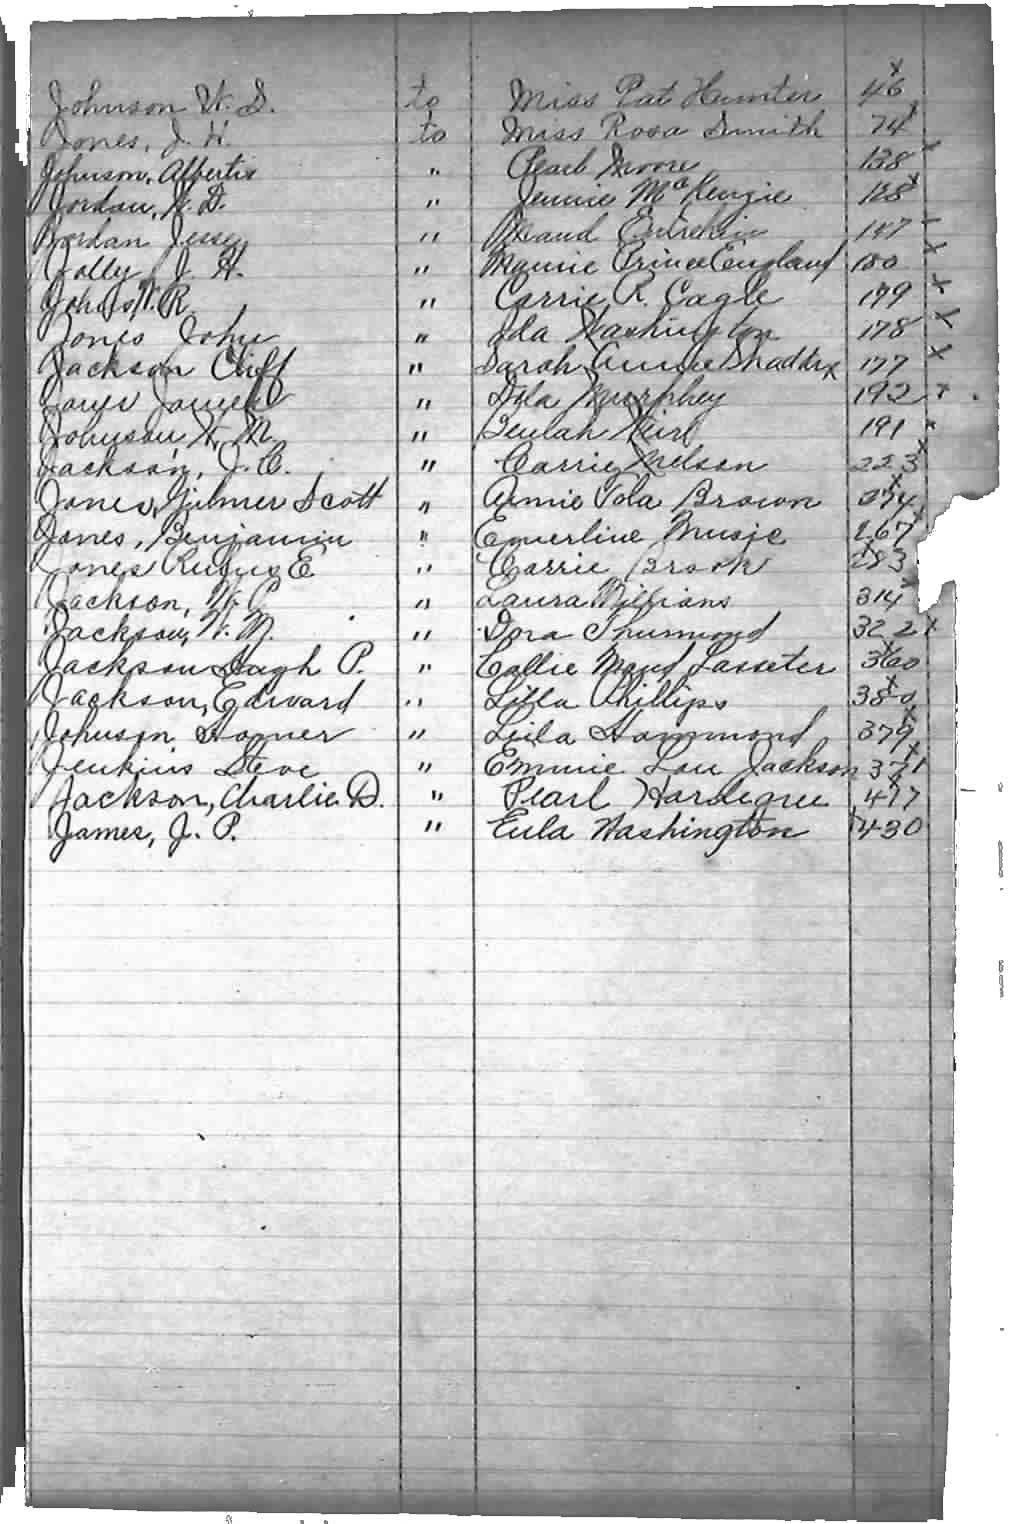 Johnson W. S. to Miss Pat Hunter 46 x
Jones, J. H. to Miss Rosa Smith 74 x
Johnson, Albertis " Pearl Moore 138 x
Jordan, W. D. " Jennie McKenzie 128 x
Jordan Jessey " Maud Entrekin 147 x
Jolly J. H. " Mamie Prince England 100 x
Johns W. R. " Carrie R. Cagle 179 x
Jones John " Ida Washington 178 x
Jackson Cliff " Sarah Annie Shaddix 177 x
" Lola Murphey 192 x
Johnson W. M. " Beulah 191 x
Jackson, J. C. " Carrie Nelson 223 x
Jones, Gilmer Scott " Annie Iola Brown x
Jones, Benjamin " Emerline Music 267 x
Jones Rufus E " Carrie Brook 283 x
Jackson, W. P. " Laura Millians 314 x
Jackson, W. M. " Dora Thurmond 322 x
Jackson Hugh P. " Callie Maud Lasseter 360 x
Jackson, Edward " Lilla Phillips 380 x
Johnson Homer " Leila Hammond 379 x
Jenkins Steve " Emmie Lou Jackson 371 x
Jackson, Charlie D. " Pearl Hardegree 417
James, J. P. " Eula Washington 430